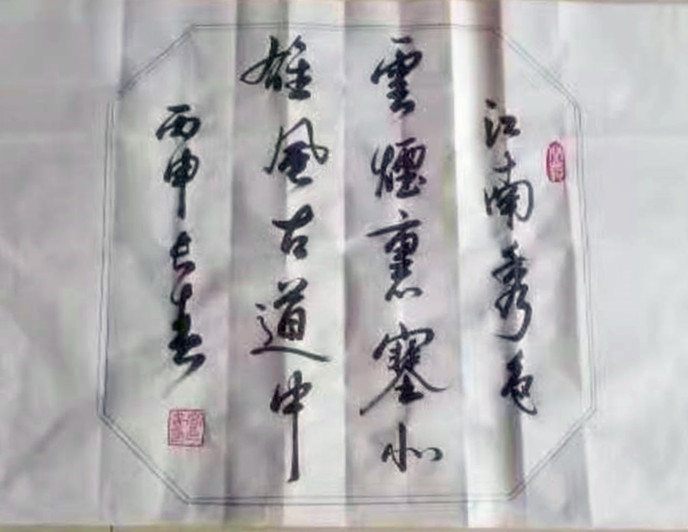 江南秀色
雲煙裏塞北
雄風古道中
丙申長春